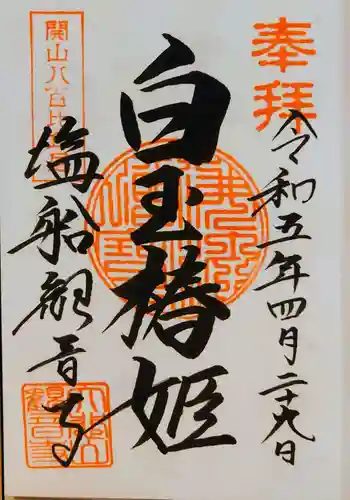 奉拝
令和五年四月二十九日
白玉椿姫
開山八百年
塩船観音寺